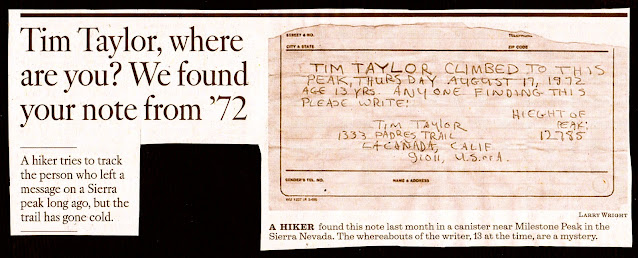 Tim Taylor, where
are you? We found
your note from '72
A hiker tries to track
the person who left a
message on a Sierra
peak long ago, but the
trail has gone cold.
STREET & NO.
TELEPHONE
CITY & STATE
ZIP CODE
TIM TAYLOR CLIMBED TO THIS
PEAK, THURSDAY AUGUST 17, 1972
AGE 13 YRS. ANYONE FINDING THIS
PLEASE WRITE:
HIEGHT OF
TIM TAYLOR PEAK:
1333 PADRES TRAIL 12785
LA CANADA, CALIF.
91011, U.S. of A.
SENDER'S TEL. NO.
NAME & ADDRESS
LARRY WRIGHT
A HIKER found this note last month in a canister near Milestone Peak in the
Sierra Nevada. The whereabouts of the writer, 13 at the time, are a mystery.